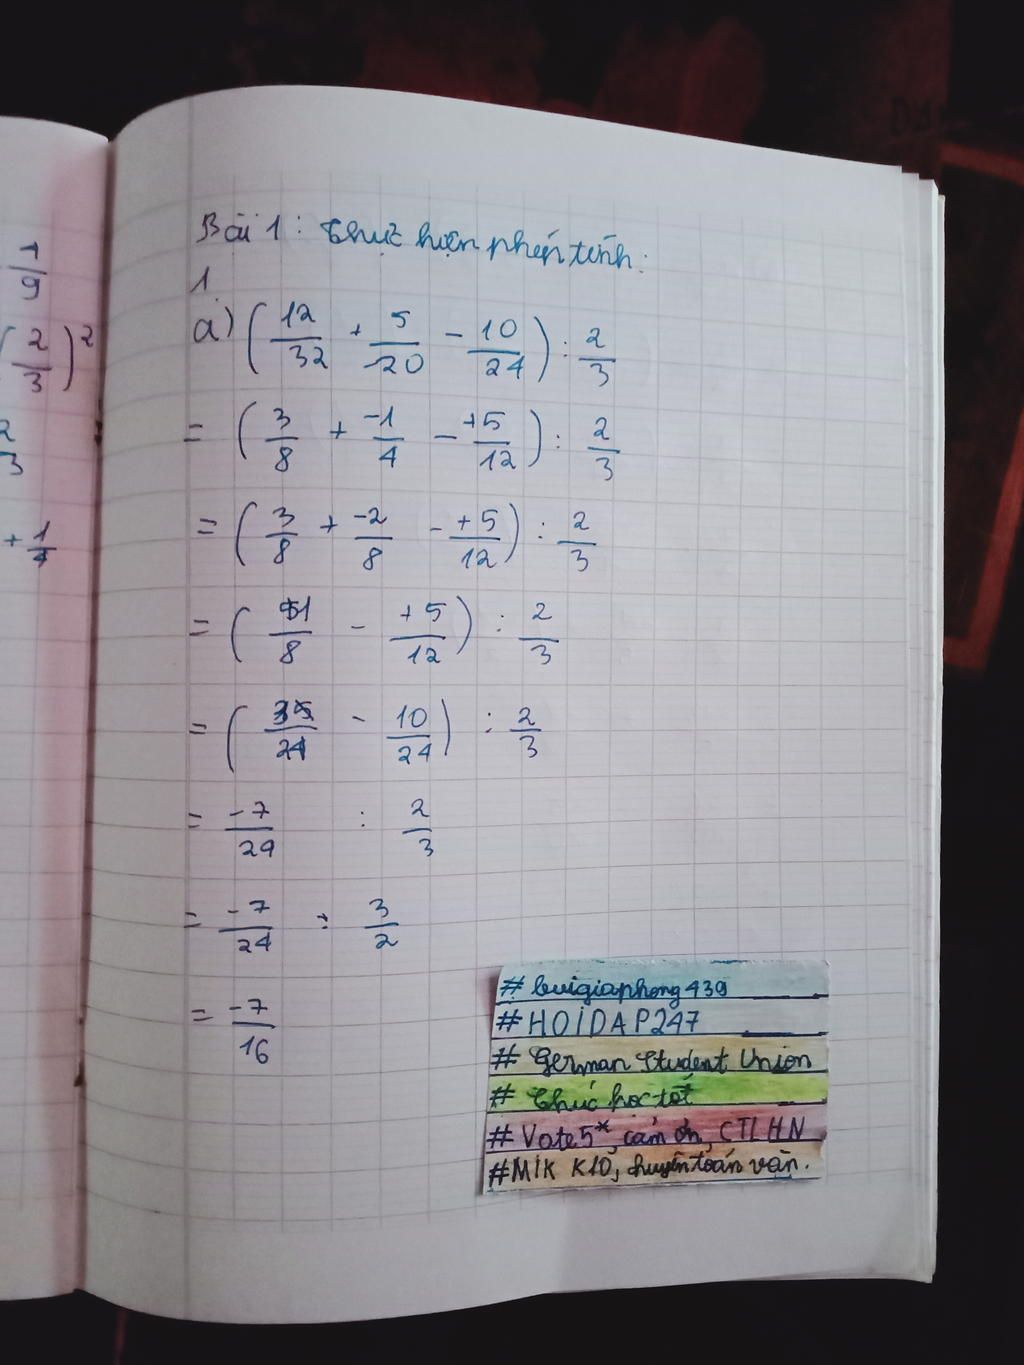 1/9
(2/3)²
2/3
+ 1/4
Bài 1: Thực hiện phép tính:
1.
a) (12/32 + 5/-20 - 10/24) : 2/3
= (3/8 + -1/4 - +5/12) : 2/3
= (3/8 + -2/8 - +5/12) : 2/3
= (1/8 - +5/12) : 2/3
= (3/24 - 10/24) : 2/3
= -7/24 : 2/3
= -7/24 : 3/2
= -7/16
# buigiaphong439
# HOIDAP247
# German Student Union
# Chúc học tốt
# Vote 5*, cảm ơn, CTLHN
# MIK K10, chuyên toán văn.